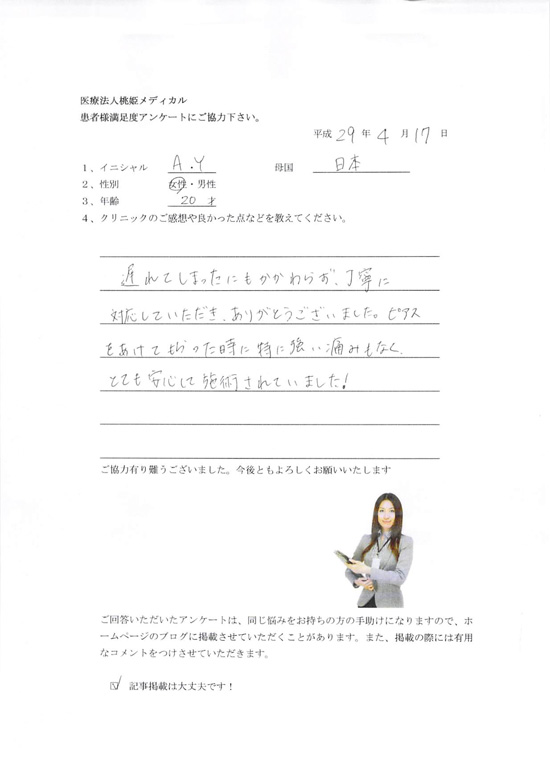 医療法人桃姫メディカル
患者様満足度アンケートにご協力下さい。
平成 29 年 4 月 17 日
1、イニシャル A.Y 母国 日本
2、性別 女性・男性
3、年齢 20 才
4、クリニックのご感想や良かった点などを教えてください。
遅れてしまったにもかかわらず、丁寧に
対応していただき、ありがとうございました。ピアス
をあけてもらった時に特に強い痛みもなく、
とても安心して施術されていました!
ご協力有り難うございました。今後ともよろしくお願いいたします
ご回答いただいたアンケートは、同じ悩みをお持ちの方の手助けになりますので、ホ
ームページのブログに掲載させていただくことがあります。また、掲載の際には有用
なコメントをつけさせていただきます。
☑ 記事掲載は大丈夫です!